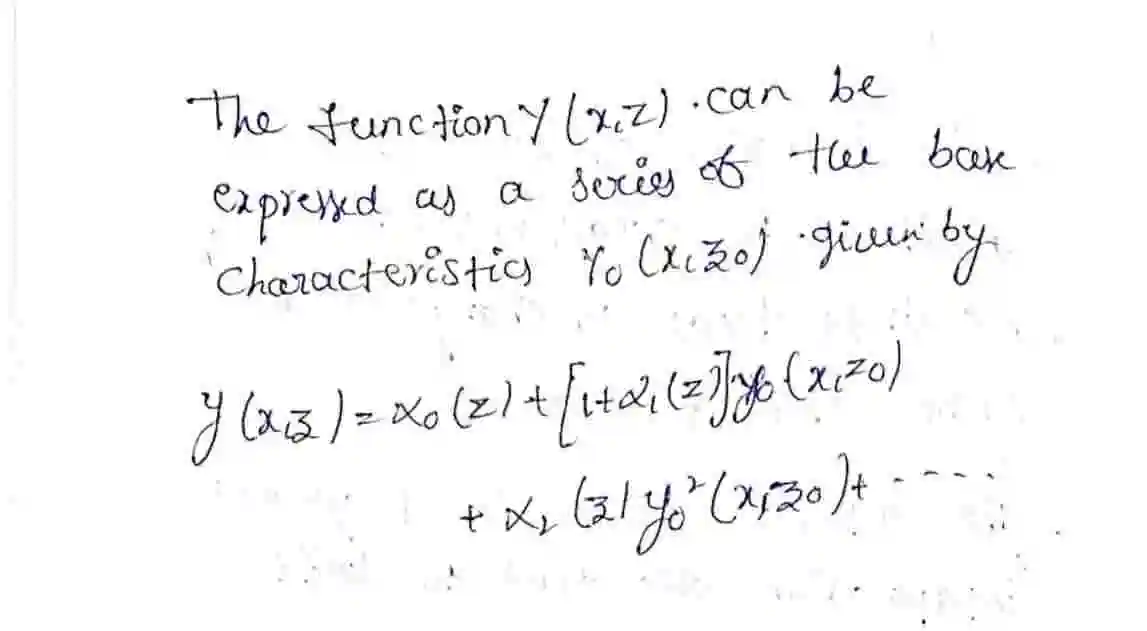 The function Y (x,z) can be
expressed as a series of the base
characteristics Y₀ (x,z₀) given by
y (x,z) = α₀ (z) + [1+α₁(z)]y₀ (x,z₀)
+ α₂ (z) y₀² (x,z₀) + -----